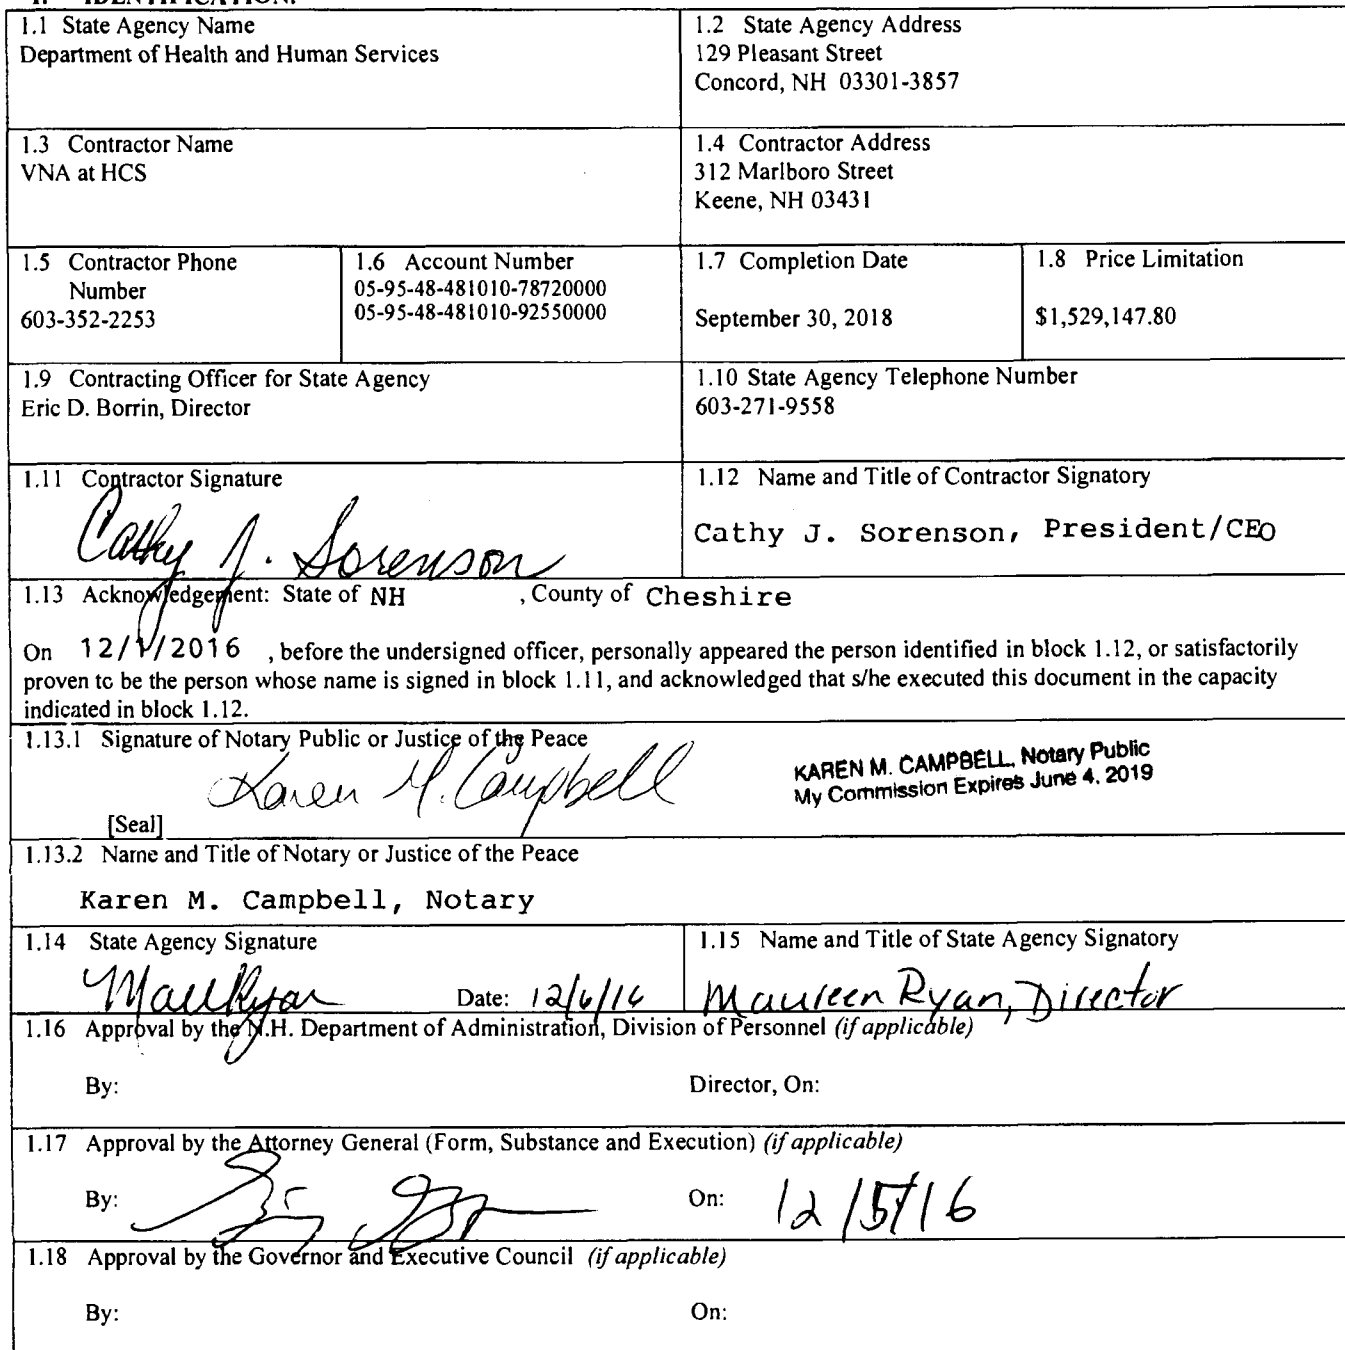 1. IDENTIFICATION.
1.1 State Agency Name
Department of Health and Human Services
1.2 State Agency Address
129 Pleasant Street
Concord, NH 03301-3857
1.3 Contractor Name
VNA at HCS
1.4 Contractor Address
312 Marlboro Street
Keene, NH 03431
1.5 Contractor Phone
Number
603-352-2253
1.6 Account Number
05-95-48-481010-78720000
05-95-48-481010-92550000
1.7 Completion Date
September 30, 2018
1.8 Price Limitation
$1,529,147.80
1.9 Contracting Officer for State Agency
Eric D. Borrin, Director
1.10 State Agency Telephone Number
603-271-9558
1.11 Contractor Signature
Cathy J. Sorenson
1.12 Name and Title of Contractor Signatory
Cathy J. Sorenson, President/CEO
1.13 Acknowledgement: State of NH , County of Cheshire
On 12/1/2016 , before the undersigned officer, personally appeared the person identified in block 1.12, or satisfactorily
proven to be the person whose name is signed in block 1.11, and acknowledged that s/he executed this document in the capacity
indicated in block 1.12.
1.13.1 Signature of Notary Public or Justice of the Peace
Karen M. Campbell
KAREN M. CAMPBELL, Notary Public
My Commission Expires June 4, 2019
[Seal]
1.13.2 Name and Title of Notary or Justice of the Peace
Karen M. Campbell, Notary
1.14 State Agency Signature
Date: 12/6/16
1.15 Name and Title of State Agency Signatory
Maureen Ryan, Director
1.16 Approval by the N.H. Department of Administration, Division of Personnel (if applicable)
By: Director, On:
1.17 Approval by the Attorney General (Form, Substance and Execution) (if applicable)
By: On: 12/5/16
1.18 Approval by the Governor and Executive Council (if applicable)
By: On: